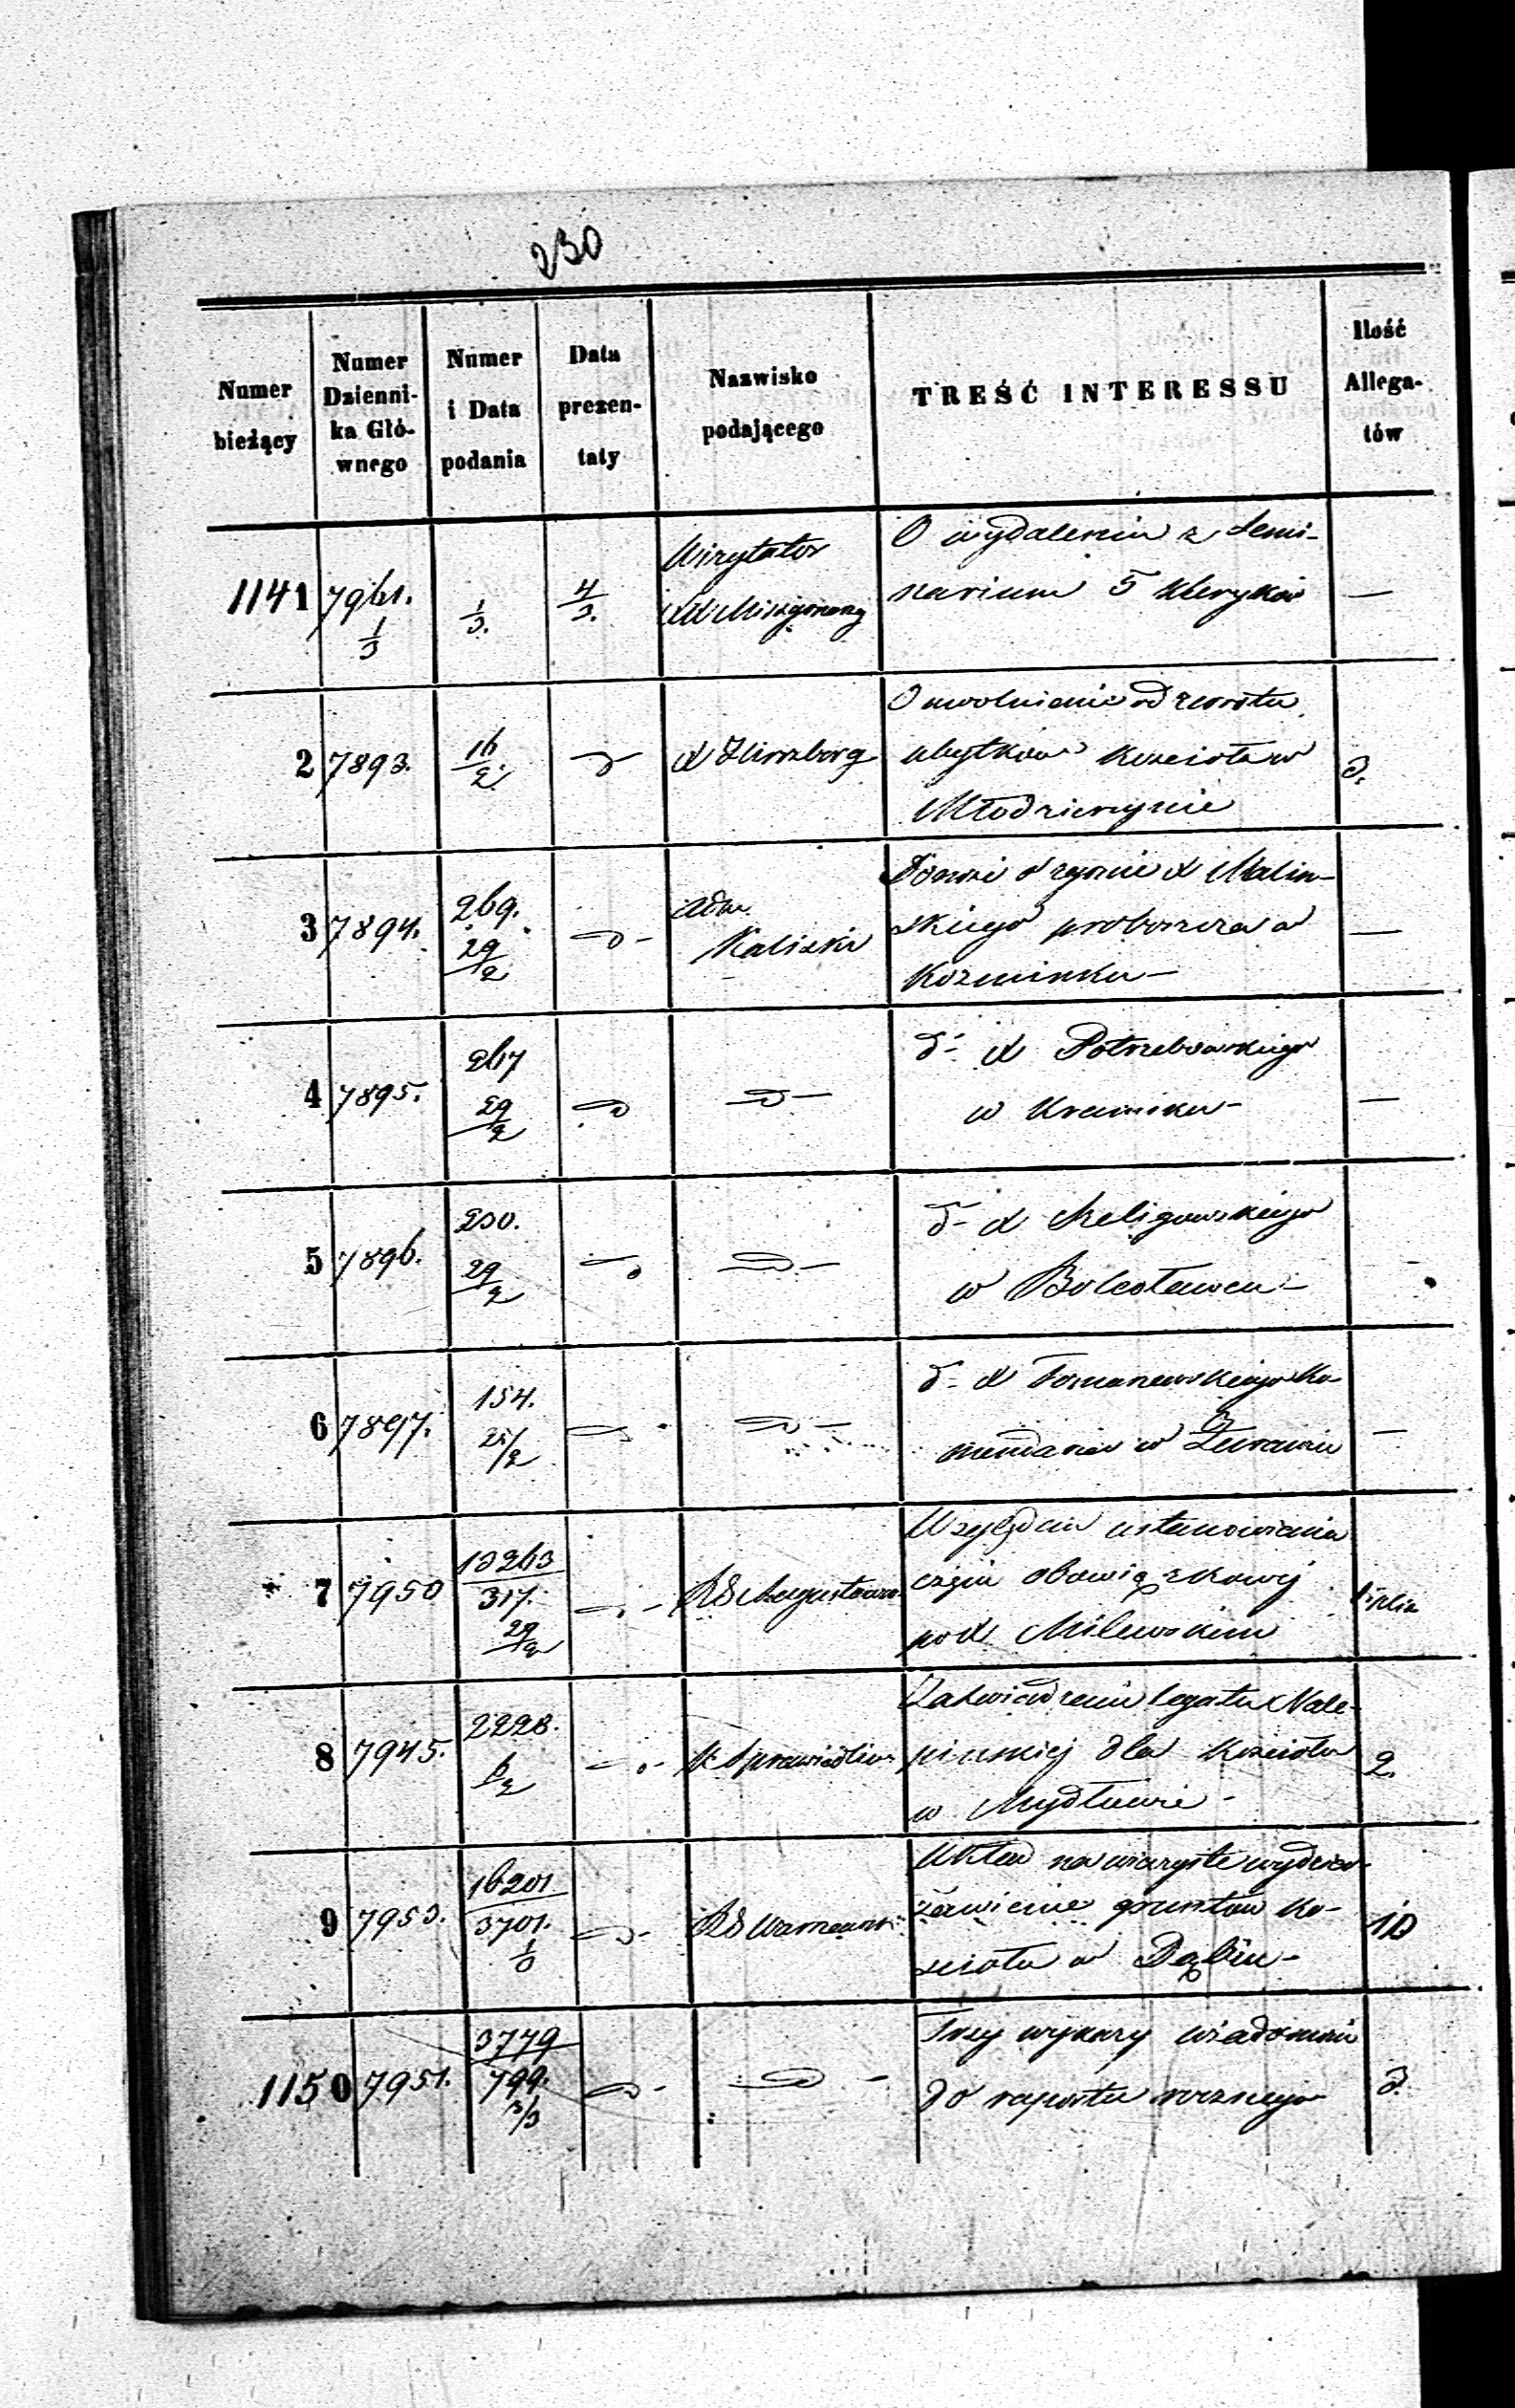 230
Numer
bieżący
Numer
Dzienni-
ka Głó-
wnego
Numer
i Data
podania
Data
prezen-
taty
Nazwisko
podającego
TREŚĆ INTERESSU
Ilość
Allega-
tów
1141
7961.
1/3
1/3.
4/3.
Wizytator
XX Missyonarzy
O wydaleniu z Semi-
narium 5 Kleryków
—
2
7893.
16/2.
d
X
O uwolnienie od zwrotu
ubytków kościoła w
Młodzieszynie
3.
3
7894.
269.
29/2
d -
Adm.
Kaliski
Donosi o zgonie X Malin-
skiego proboszcza w
Kozminku —
—
4
7895.
267
29/2
d
d -
d- X Potrzebowskiego
w
—
5
7896.
230.
29/2
d
d -
d- X Szeligowskiego
w Bolesławcu -
-
6
7897.
154.
25/2
d
d -
d- X Tomanewskiego Ko-
mendarza w
—
7
7950
13263
317.
29/2
d -
RG Augustows.
Względem ustanowienia
czyń obowiązkowej
po X Milewskim
8
7945.
2228.
6/2
d -
K Sprawiedliw.
Zatwierdzenie legatu Nale-
pinskiej dla Kościoła
w Mydłowie -
2.
9
7953.
16201
3701.
1/3
d -
RG Warszaws.
Układ na wieczyste wydzier-
żawienie gruntów Ko-
scioła w Dąbiu -
10
1150
7951.
3779
799.
3/3
d -
d -
Trzy wykazy wiadomości
do raportu rocznego
3.